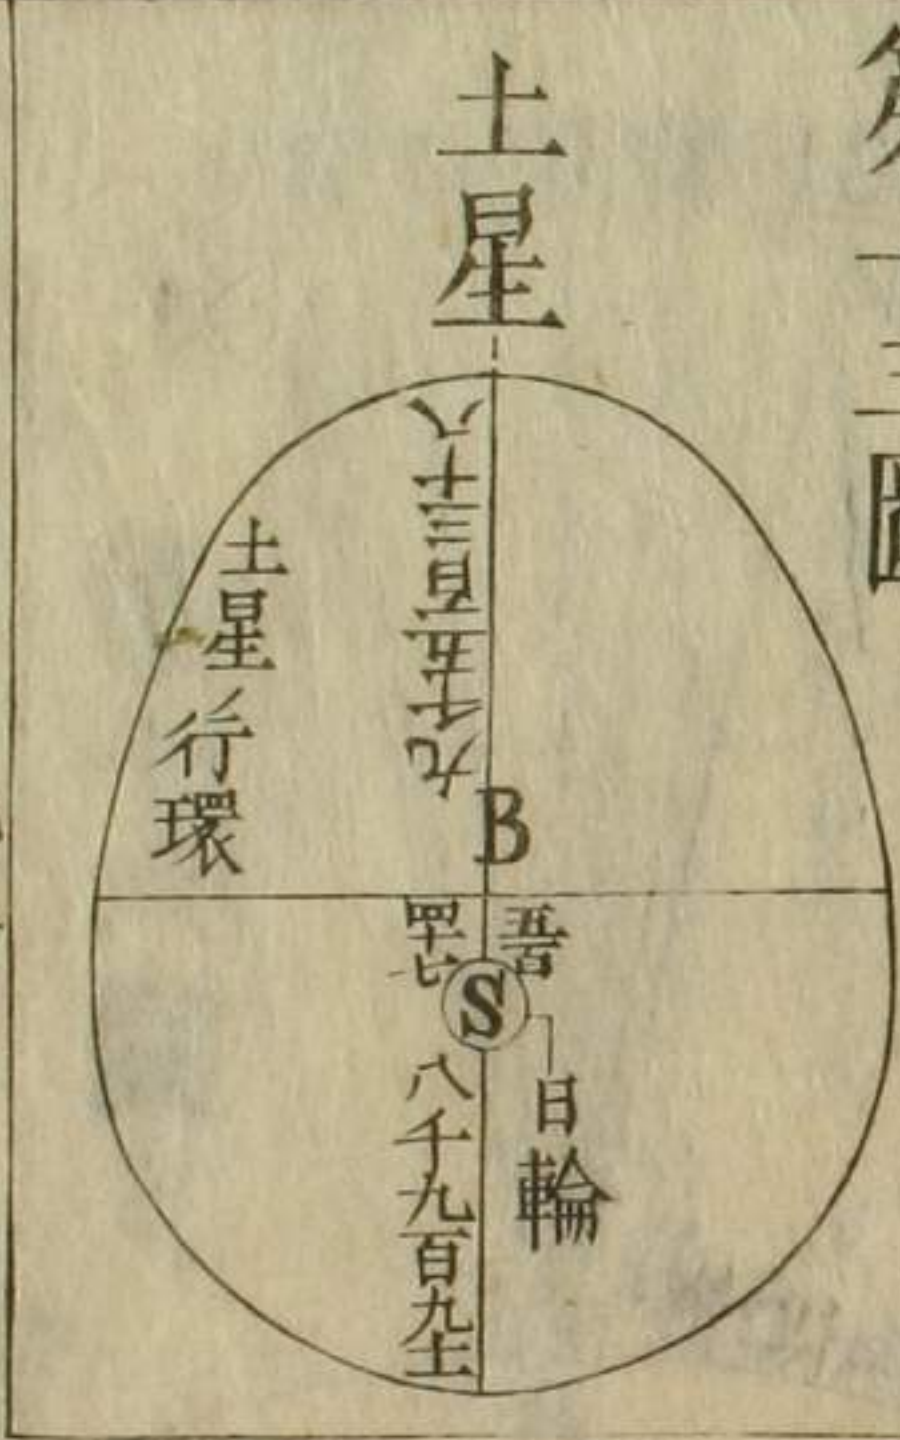 土星
土星行環
九千五百三十八
B
五百
四十七
S
日輪
八千九百九十一